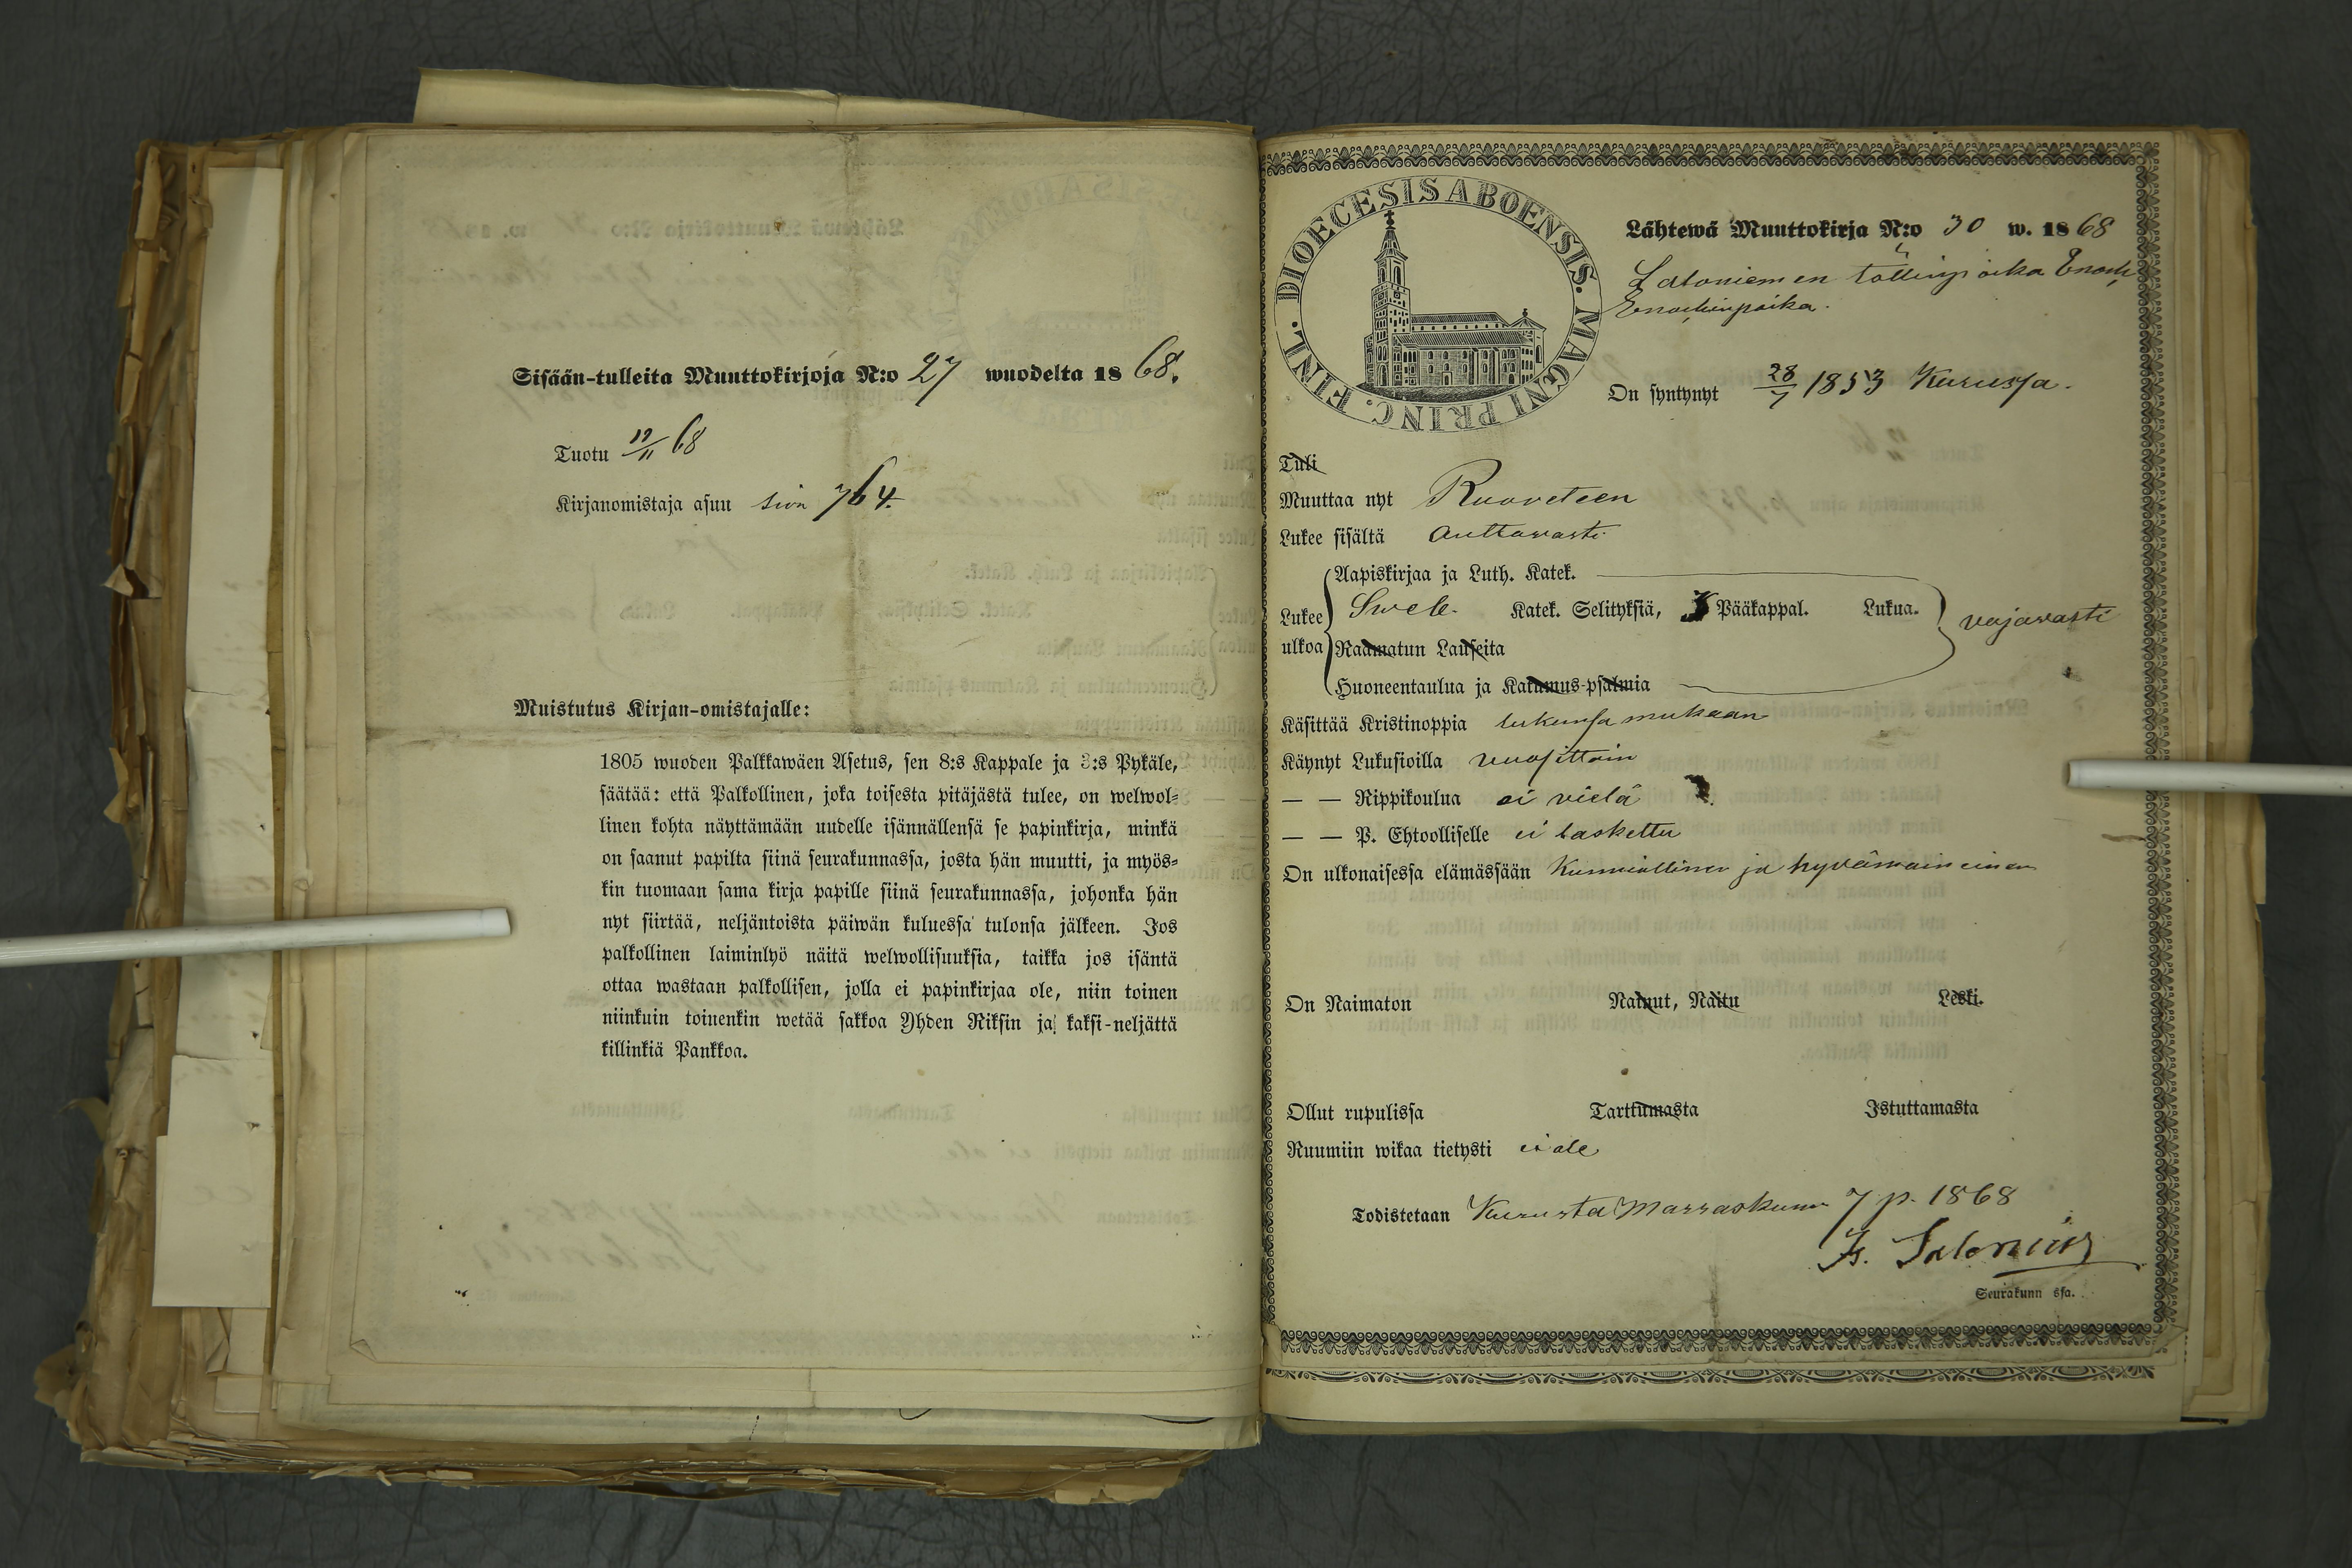 Sisään-tulleita Muuttokirjoja N:o 27 wuodelta 18 68.
Tuotu 17/11 68
Kirjanomistaja asuu siv. 764.
Muistutus Kirjan-omistajalle:
1805 wuoden Palkkawäen Asetus, sen 8:s Kappale ja 3:s Pykäle,
säätää: että Palkollinen, joka toisesta pitäjästä tulee, on welwol=
linen kohta näyttämään uudelle isännällensä se papinkirja, minkä
on saanut papilta siinä seurakunnassa, josta hän muutti, ja myös=
kin tuomaan sama kirja papille siinä seurakunnassa, johonka hän
nyt siirtää, neljäntoista päiwän kuluessa tulonsa jälkeen. Jos
palkollinen laiminlyö näitä welwollisuuksia, taikka jos isäntä
ottaa wastaan palkollisen, jolla ei papinkirjaa ole, niin toinen
niinkuin toinenkin wetää sakkoa Yhden Riksin ja kaksi-neljättä
killinkiä Pankkoa.
DIOECESIS ABOENSIS. MAGNI PRINC. FINL.
Lähtewä Muuttokirja N:o 30 w. 18 68
Latoniemen töllinpoika Enoch
Enochinpoika.
On syntynyt 28/7 1853 Kurussa.
Tuli
Muuttaa nyt Ruoveteen
Lukee sisältä auttavasti
Aapiskirjaa ja Luth. Katek.
Lukee ulkoa Sweb. Katek. Selityksiä, Pääkappal. Lukua. vajavasti
Raamatun Lauseita
Huoneentaulua ja Katumus-psalmia
Käsittää Kristinoppia lukunsa mukaan
Käynyt Lukusioilla vuosittain
— — Rippikoulua ei vielä
— — P. Ehtoolliselle ei laskettu
On ulkonaisessa elämässään Kunniallinen ja hyvämaineinen
On Naimaton Nainut, Naitu Leski.
Ollut rupulissa Tarttumasta Istuttamasta
Ruumiin wikaa tietysti ei ole
Todistetaan Kurusta Marraskuun 7 p. 1868
Salonius
Seurakunn ssa.